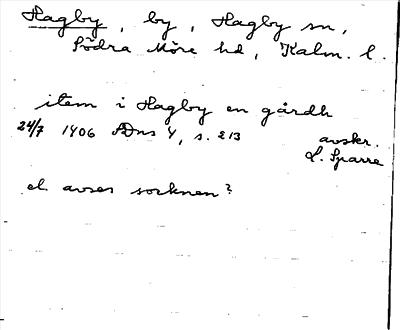 Hagby, by, Hagby sn,
Södra Möre hd, Kalm. l.
item i Hagby en gårdh
24/7 1406 Dns 4, s. 213
avskr.
L. Sparre
el. avses socknen?